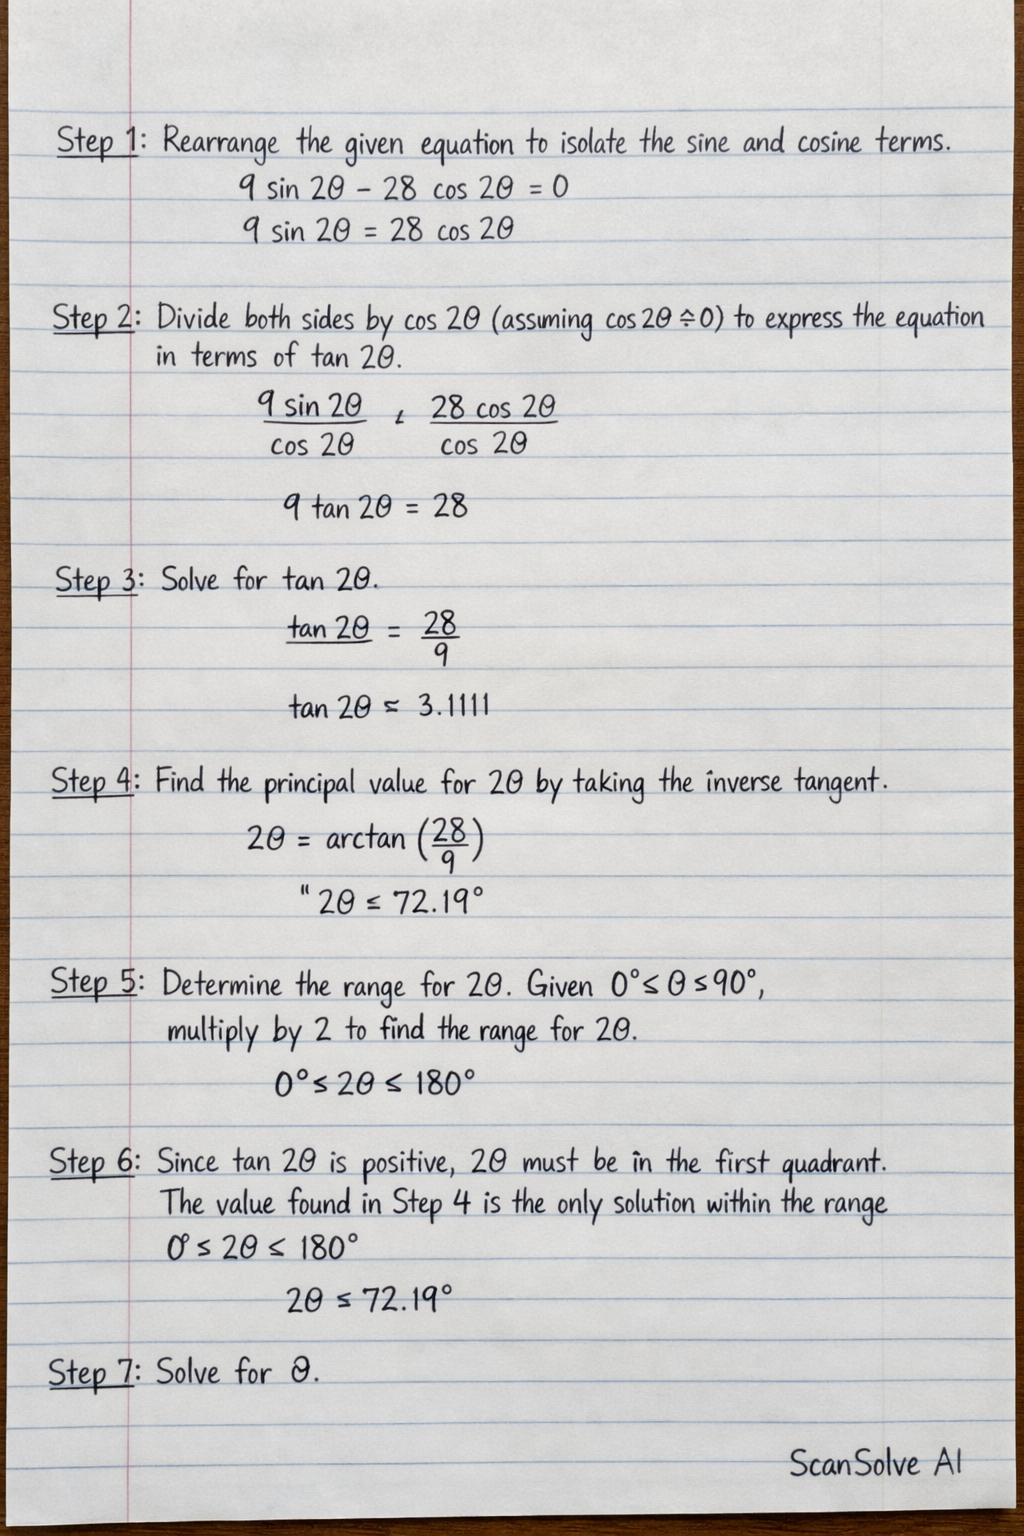 Step 1: Rearrange the given equation to isolate the sine and cosine terms.
9 sin 2θ − 28 cos 2θ = 0
9 sin 2θ = 28 cos 2θ
Step 2: Divide both sides by cos 2θ (assuming cos 2θ ≑ 0) to express the equation
in terms of tan 2θ.
9 sin 2θ / cos 2θ , 28 cos 2θ / cos 2θ
9 tan 2θ = 28
Step 3: Solve for tan 2θ.
tan 2θ = 28/9
tan 2θ ≂ 3.1111
Step 4: Find the principal value for 2θ by taking the inverse tangent.
2θ = arctan (28/9)
" 2θ ≤ 72.19°
Step 5: Determine the range for 2θ. Given 0° ≤ θ ≤ 90°,
multiply by 2 to find the range for 2θ.
0° ≤ 2θ ≤ 180°
Step 6: Since tan 2θ is positive, 2θ must be in the first quadrant.
The value found in Step 4 is the only solution within the range
0° ≤ 2θ ≤ 180°
2θ ≤ 72.19°
Step 7: Solve for θ.
ScanSolve AI